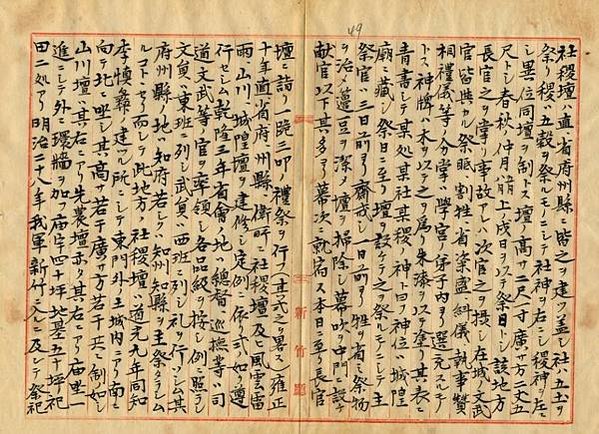 社稷壇ハ直省府州縣ニ皆之ヲ建ツ蓋シ社ハ五土ヲ
祭リ稷ハ五穀ヲ祭ルモノニシテ社神ヲ右ニシ稷神ヲ左ニ
シ異位同壇ヲ制トス壇ノ高サ二尺一寸廣サ方二丈五
尺トシ春秋仲月上戊日ヲ以テ祭日トシ該地方
長官之ヲ掌リ事故アレハ次官之ヲ攝シ在城ノ文武
官皆與カル祭眡割牲省粢盛糾儀執事贊
相禮儀等ノ分掌ハ學官ノ弟子内ヨリ選充スルモノ
トス神牌ハ木ヲ以テ之ヲ爲リ朱漆ヲ以テ塗リ其表ニ
青書シテ某処某社某稷ノ神ト曰フ神位ハ城隍
廟ニ藏シ祭日ニ至リ壇ヲ設ケテ之ヲ祭ル
祭官ハ三日前ヨリ齋戒シ一日前ヨリ牲ヲ省シ祭物
ヲ治メ籩豆ヲ滌メ壇ヲ掃除シ幕次ヲ中門ニ設ケ
献官以下其ノ幕次ニ就宿ス本日ニ至リ長官
壇ニ詣リ一跪三叩ノ禮祭ヲ行フ(主式之ヲ畧ス)雍正
十年直省府州縣衛所ニ社稷壇及ヒ風雲雷
雨山川城隍壇ヲ建修シ定例ニ依リ式ノ如ク遵
行セシム乾隆三年省會ノ地ハ總督巡撫等ハ司
道文武等ノ官ヲ率領シ各品級ヲ按シ例ニ照シテ
文員ハ東班ニ列シ武員ハ西班ニ列シ礼ヲ行ハシメ其
府州縣ノ地ハ知府若シクハ知州知縣ヲ主祭タラシム
ルコトセリ而シテ此地方ノ社稷壇ハ道光九年同知
李愼彜ノ建ツル所ニシテ東門外土城内ニアリ南ニ
向テ北ニ坐シ其高サ若干廣サ方若干共ニ制ノ如シ
山川壇ハ其右ニアリ先農壇亦其右ニアリ廟坐一
進ニシテ外ニ環牆ヲ加フ廟宇四十坪地基五十坪祀
田二処アリ明治二十八年我軍新竹ニ入ルニ及ヒテ祭祀
新竹廳
49